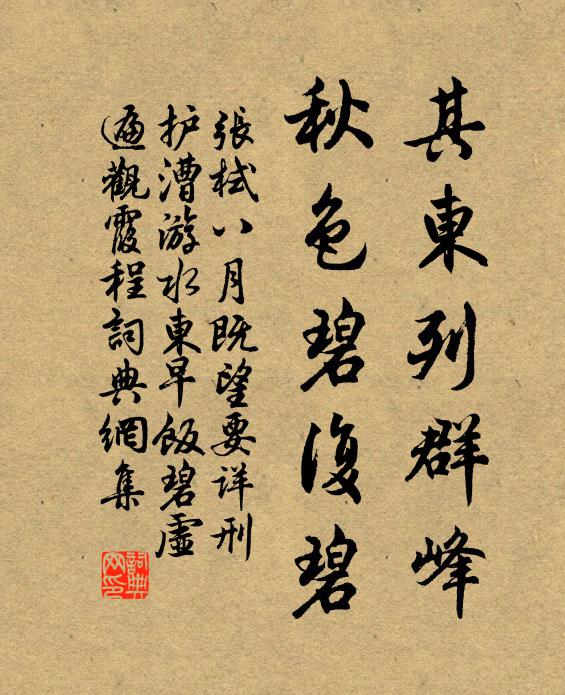 其東列群峰
秋色碧復碧
張栻八月既望要详刑
护漕游水東早飯碧虛
遍觀霞程詞典網集
詞典網印